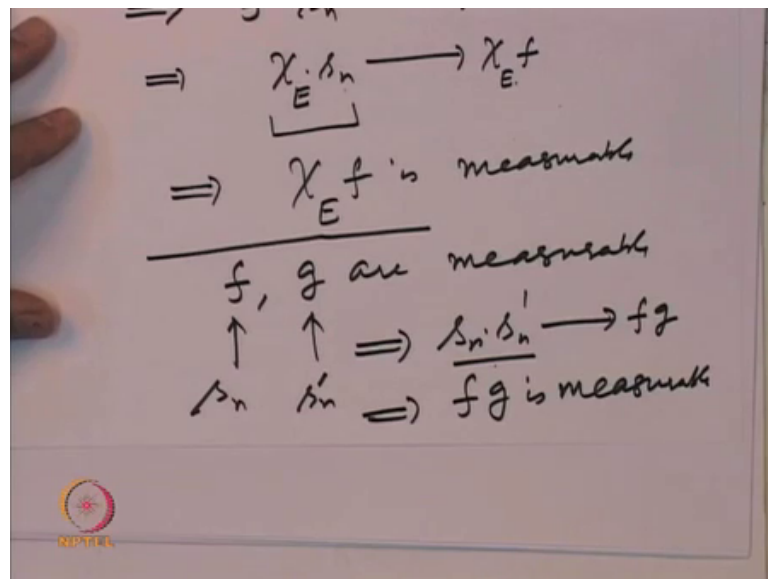 ⇒
⇒ χ_E · s_n → χ_E f
⇒ χ_E f is measurable
f, g are measurable
↑ ↑ ⇒ s_n · s'_n → f g
s_n s'_n ⇒ f g is measurable
NPTEL